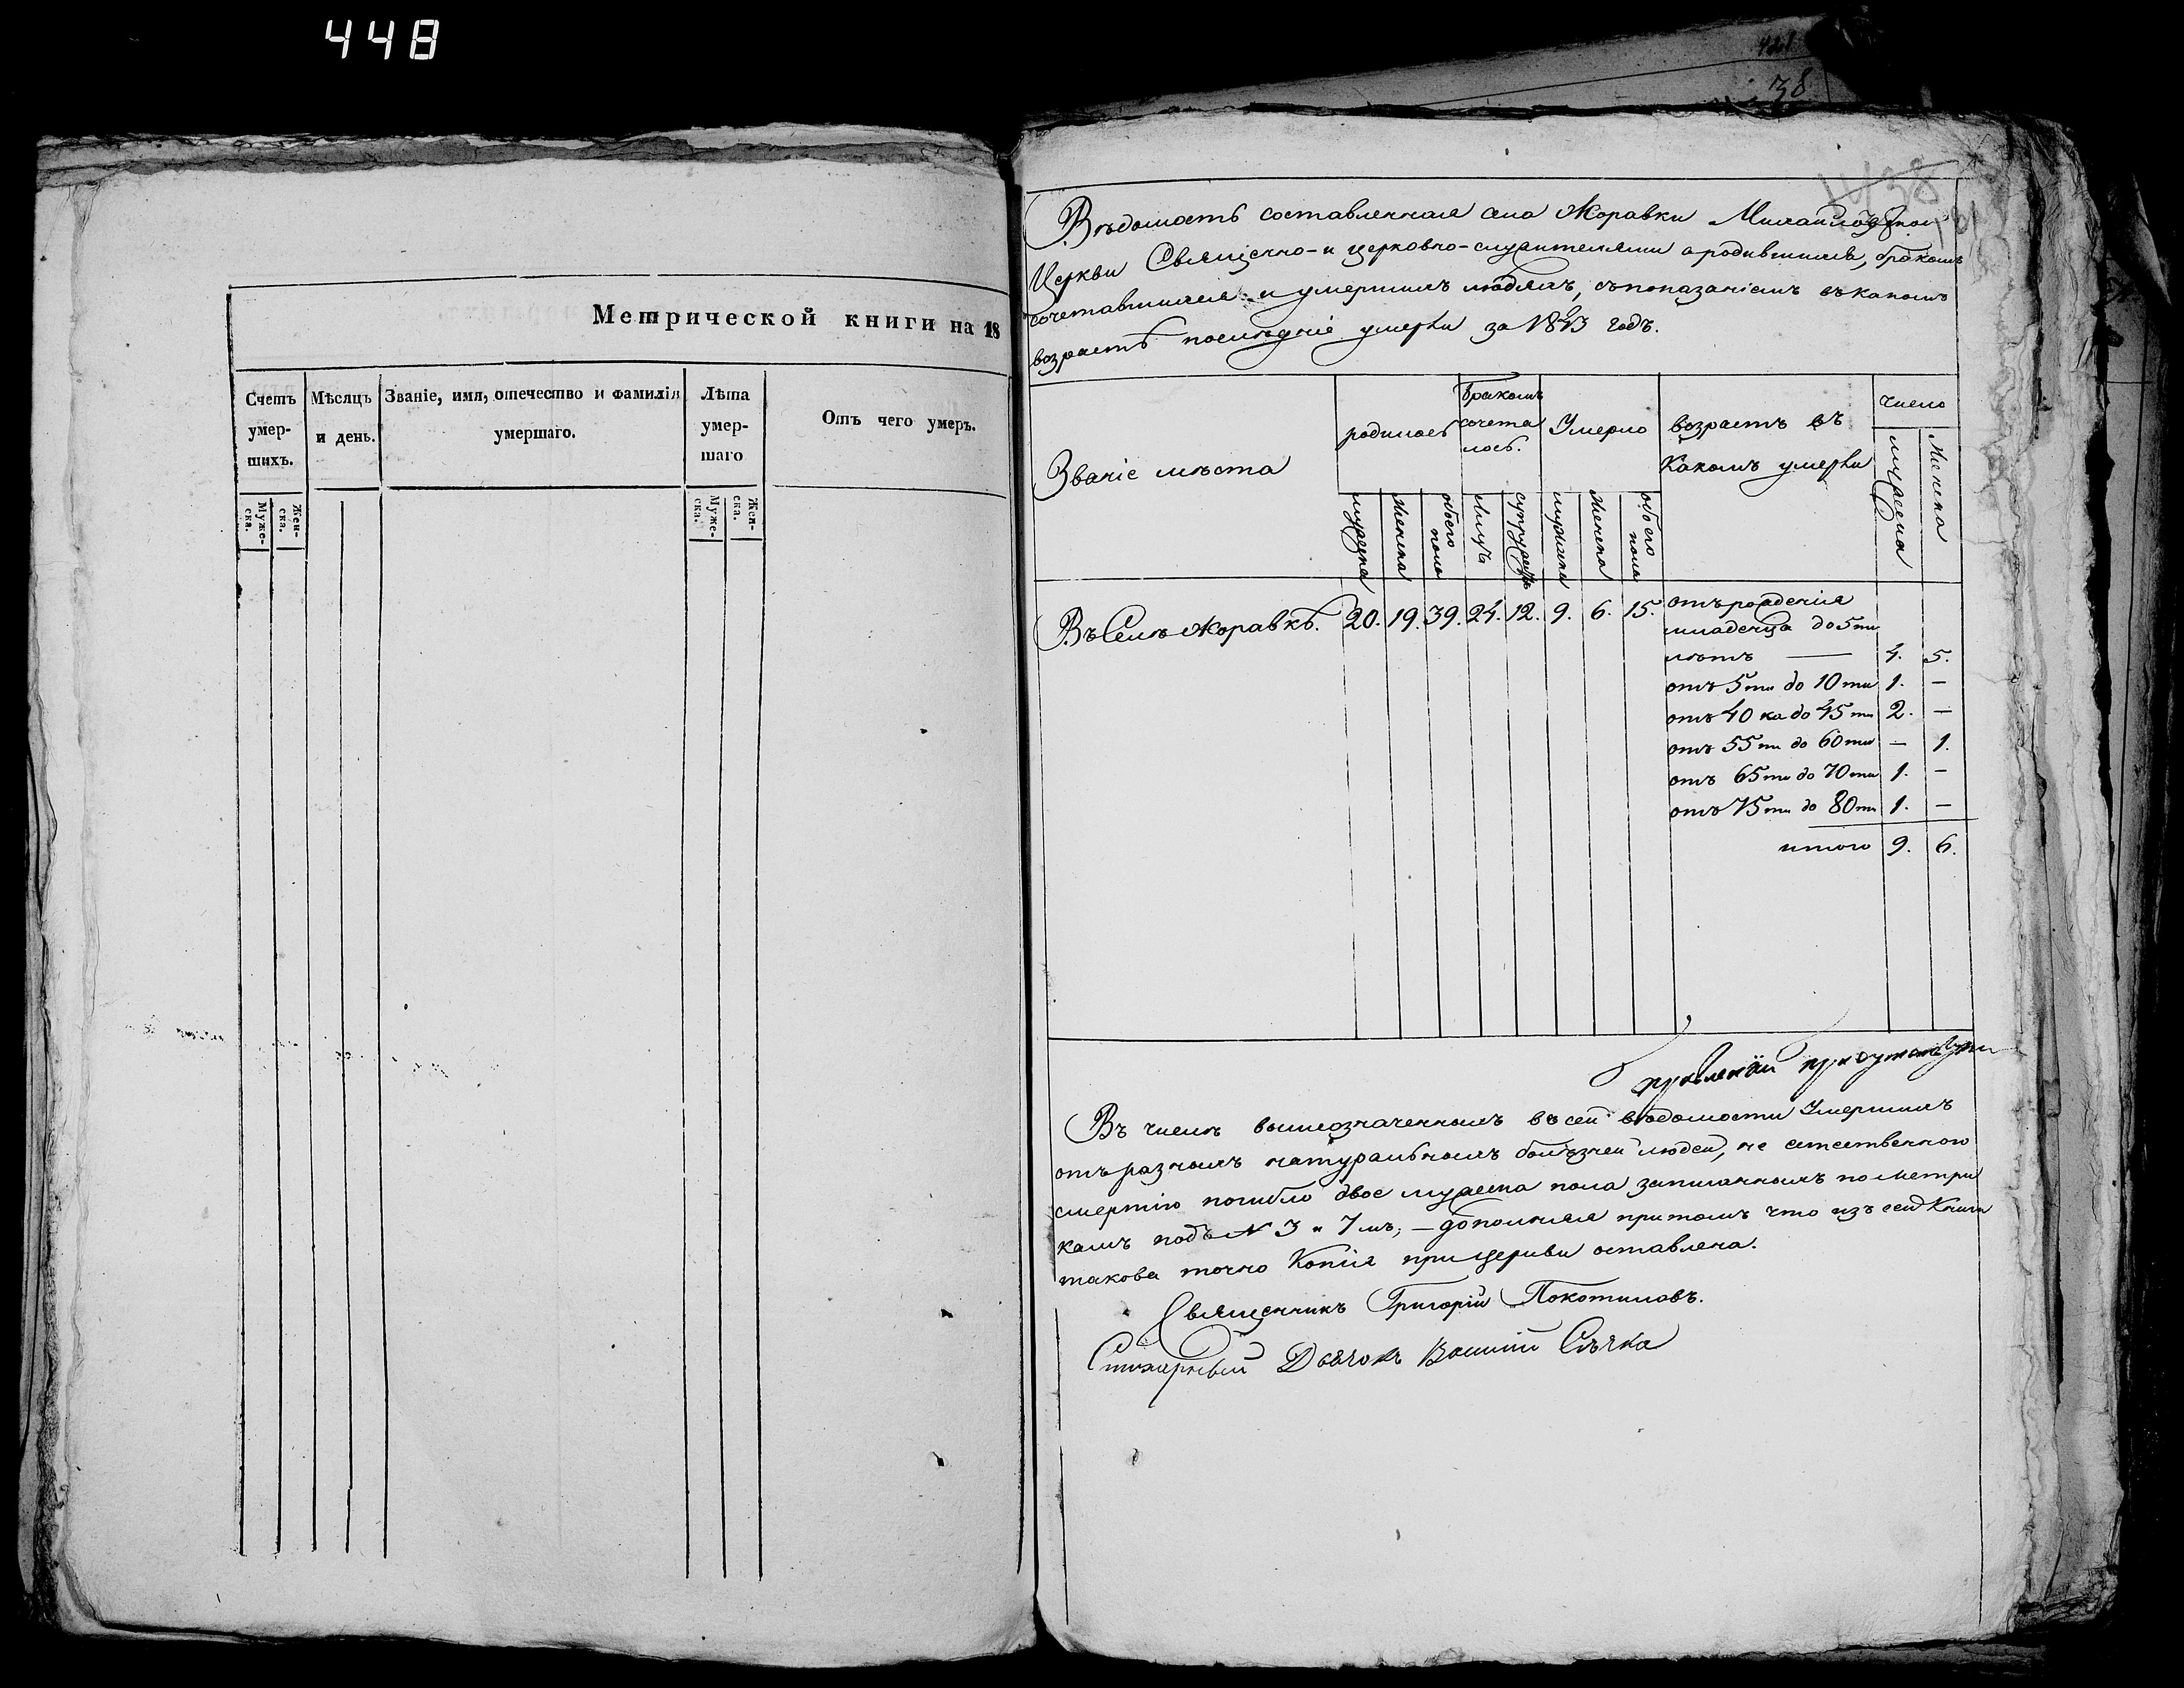 448
421
38
Метрической книги на 18
Счетъ умер-шихъ.
Мѣсяцъ и день.
Званіе, имя, отечество и фамилія умершаго.
Лѣта умер-шаго
Отъ чего умеръ.
Муже-ска.
Жен-ска.
Муже-ска.
Жен-ска.
Вѣдомость составленная села Жоравки Михайловской
Церкви Священно-и церковно-служителями о родившихся, бракомъ
сочетавшихся и умершихъ людяхъ, съ показаніемъ въ какомъ
возрастѣ послѣдніе умерли за 1843 годъ.
Званіе мѣста
родилось
бракомъ сочета лось.
Умерло
возрастъ въ
какомъ умерли
число
мужеска
женска
обоего пола
лицъ
супружествъ
мужеска
женска
обоего пола
мужеска
женска
Въ Селѣ Жоравкѣ. 20. 19. 39. 24. 12. 9. 6. 15. отъ рожденія
младенца до 5ти
лѣтъ — 4. 5.
отъ 5ти до 10ти 1. —
отъ 40ка до 45ти 2. —
отъ 55ти до 60ти — 1.
отъ 65ти до 70ти 1. —
отъ 75ти до 80ти 1. —
итого 9. 6.
Въ числѣ вышеозначенныхъ въ сей вѣдомости Умершихъ
отъ разныхъ натуральныхъ болѣзней людей, не естественною
смертію погибло двое мужеска пола записанныхъ по метри
камъ подъ N 3 и 7мъ; — дополняя притомъ что изъ сей Книги
такова точно Копія при церкви оставлена.
Священникъ Григорій Покотиловъ.
Стихарный Дьячокъ Василій Сѣчка